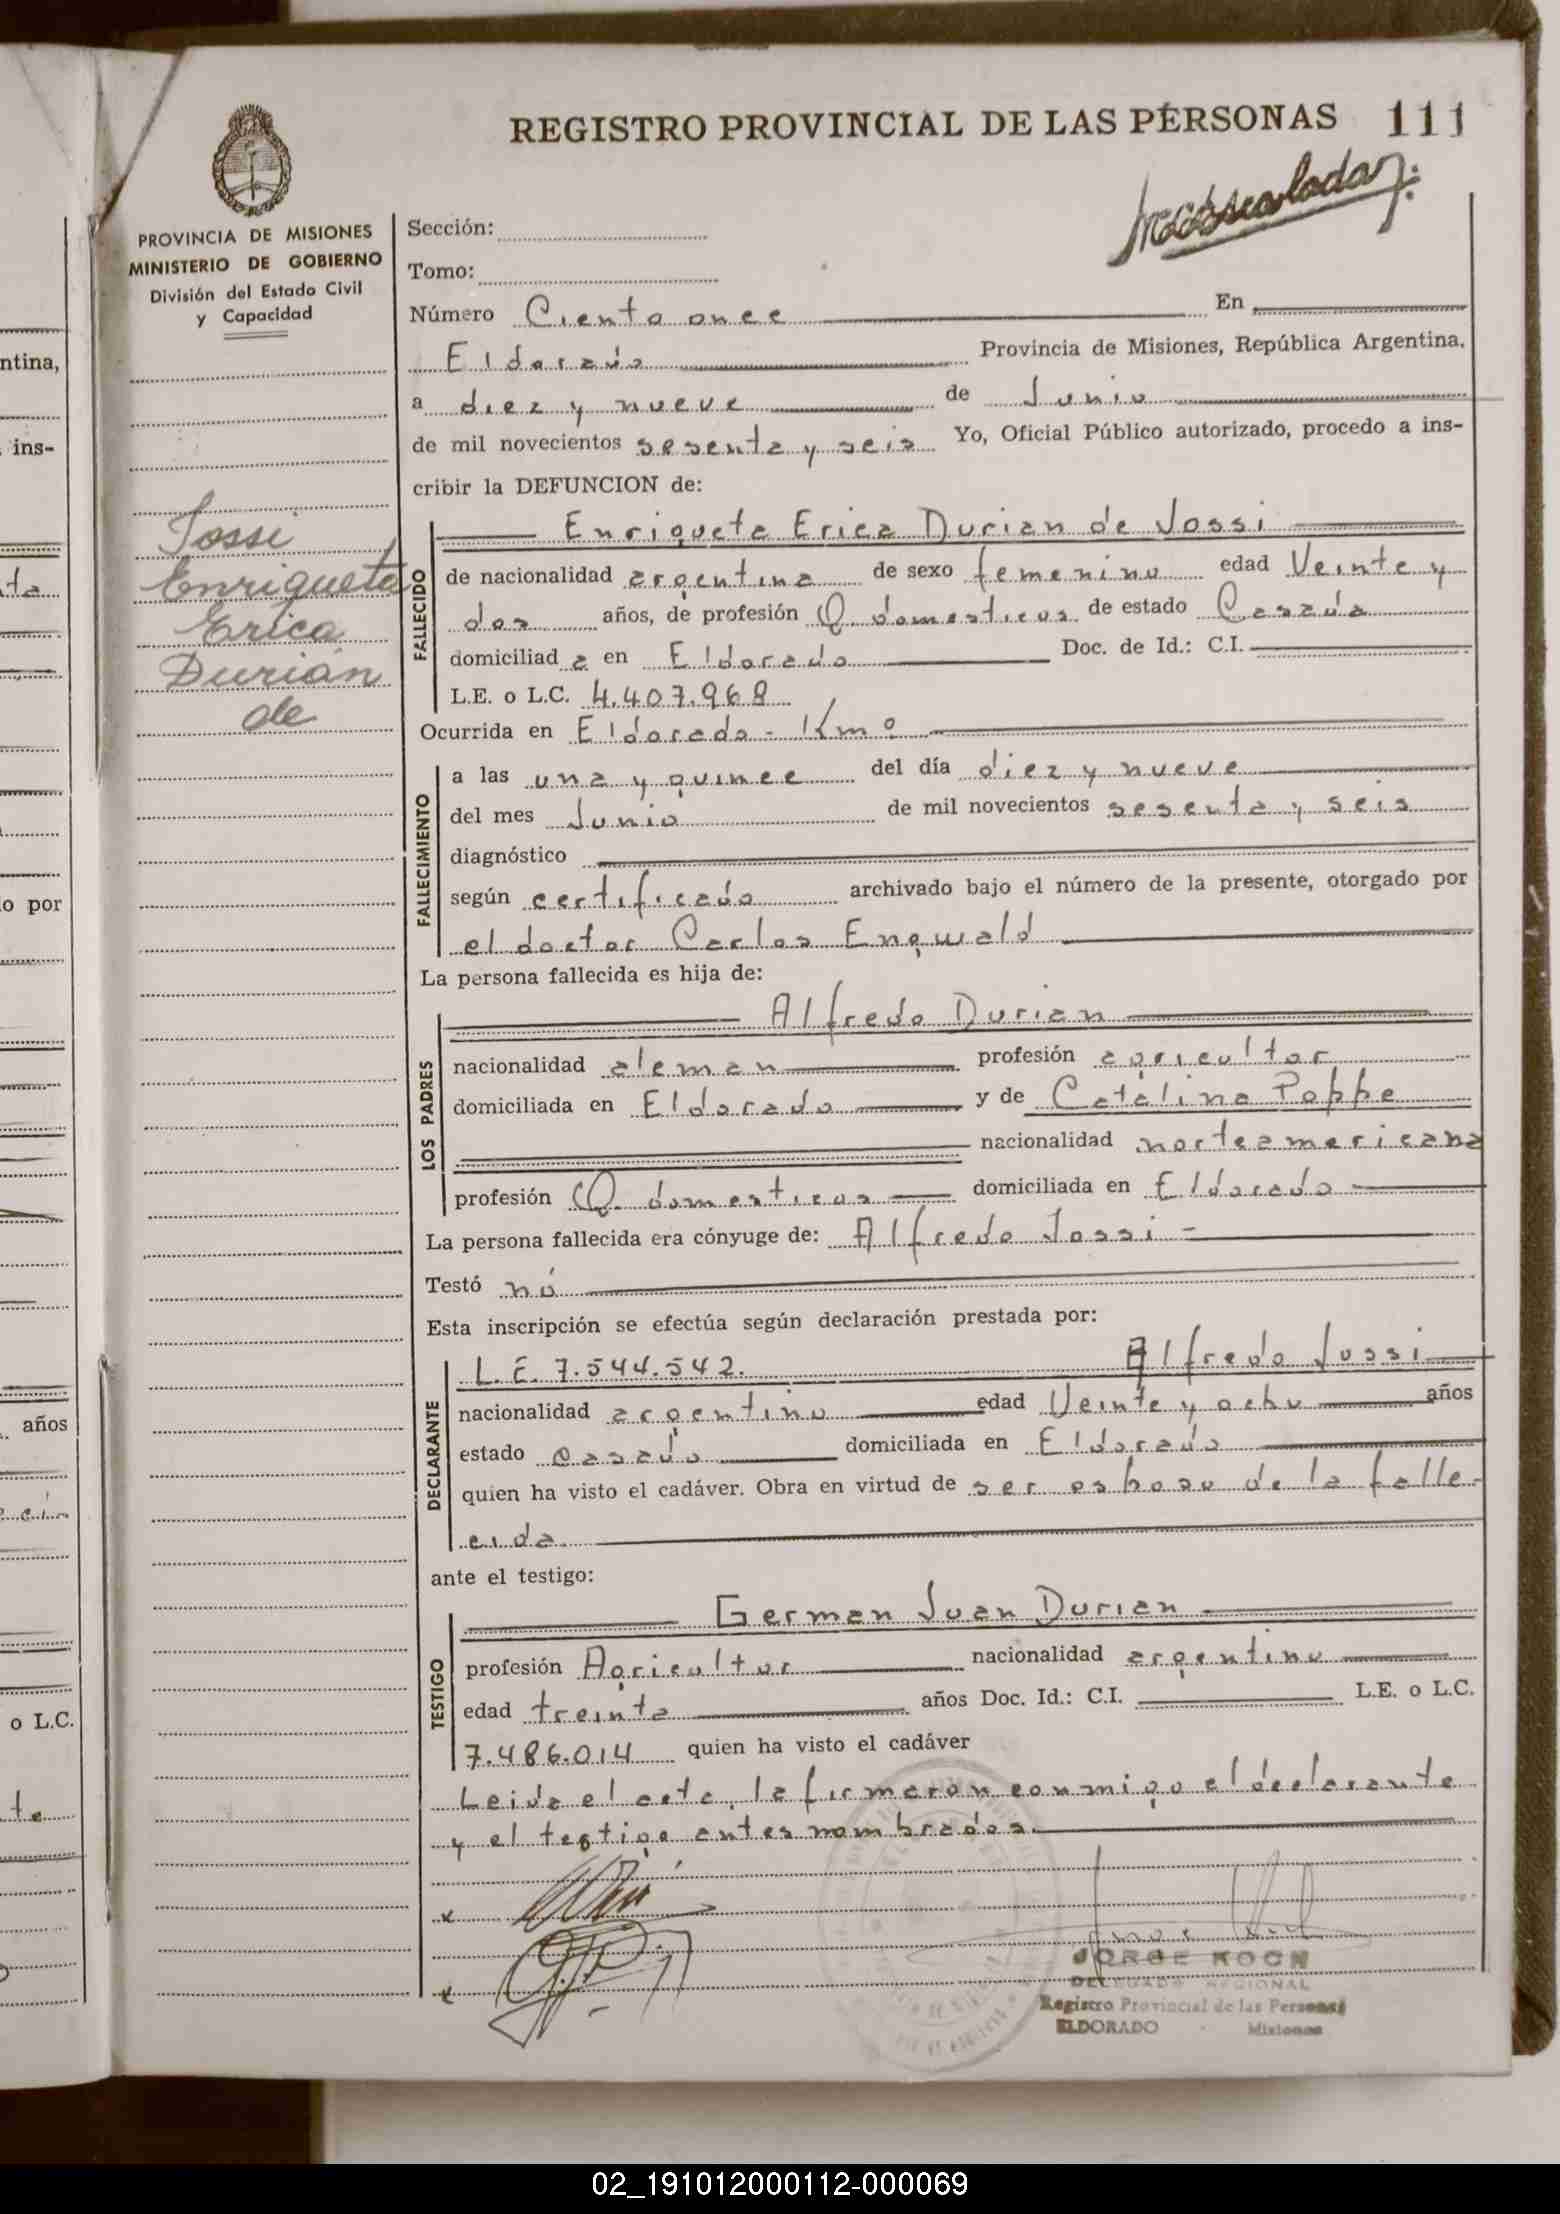 REGISTRO PROVINCIAL DE LAS PERSONAS 111
PROVINCIA DE MISIONES
MINISTERIO DE GOBIERNO
División del Estado Civil
y Capacidad
Jossi
Enriqueta
Erica
Durián
de
Sección:
Tomo:
Número Ciento once En
Eldorado Provincia de Misiones, República Argentina,
a diez y nueve de Junio
de mil novecientos sesenta y seis Yo, Oficial Público autorizado, procedo a ins-
cribir la DEFUNCION de:
FALLECIDO
Enriqueta Erica Durian de Jossi
de nacionalidad argentina de sexo femenino edad Veinte y
dos años, de profesión Q. domesticos de estado Casada
domiciliad a en Eldorado Doc. de Id.: C.I.
L.E. o L.C. 4.407.968
Ocurrida en Eldorado - Km
FALLECIMIENTO
a las una y quince del día diez y nueve
del mes Junio de mil novecientos sesenta y seis
diagnóstico
según certificado archivado bajo el número de la presente, otorgado por
el doctor Carlos Engwald
La persona fallecida es hija de:
LOS PADRES
Alfredo Durian
nacionalidad aleman profesión agricultor
domiciliada en Eldorado y de Catalina Poppe
nacionalidad norteamericana
profesión Q. domesticos domiciliada en Eldorado
La persona fallecida era cónyuge de: Alfredo Jossi
Testó nó
Esta inscripción se efectúa según declaración prestada por:
DECLARANTE
L.E. 7.544.542. Alfredo Jossi
nacionalidad argentino edad Veinte y ocho años
estado casado domiciliada en Eldorado
quien ha visto el cadáver. Obra en virtud de ser esposo de la falle-
cida
ante el testigo:
TESTIGO
German Juan Durian
profesión Agricultor nacionalidad argentino
edad treinta años Doc. Id.: C.I. L.E. o L.C.
7.486.014 quien ha visto el cadáver
Leida el acta, la firmaron conmigo el declarante
y el testigo antes nombrados.
JORGE KOCH
DELEGADO REGIONAL
Registro Provincial de las Personas
ELDORADO - Misiones
ntina,
ins-
o por
años
o L.C.
02_191012000112-000069